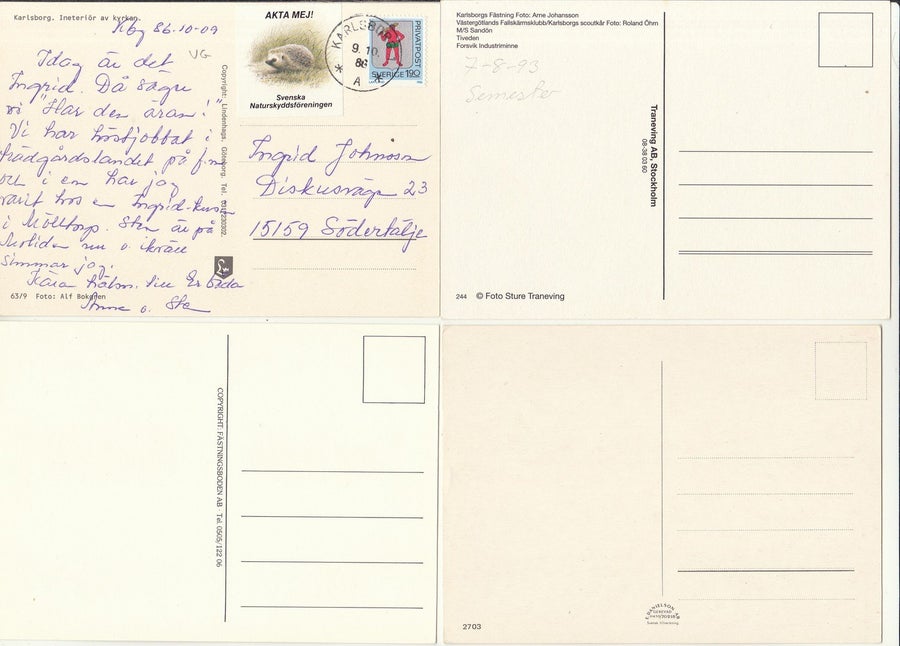 Karlsborg. Ineteriör av kyrkan.
Kbg 86-10-09
VG
Idag är det
Ingrid. Då säger
vi "Har den äran!"
Vi har höstjobbat i
trädgårdslandet på f.m
och i em har jag
varit hos en Ingrid-kusin
i Mölltorp. Sten är på
nu o. ikväll
simmar jag.
Kära hälsn. till Er båda
Anna o. Sten
63/9 Foto: Alf Bokgren
Copyright: Lindenhags, Göteborg. Tel.
AKTA MEJ!
Svenska
Naturskyddsföreningen
KARLSBORG
9. 10.
86
A
PRIVATPOST
SVERIGE 190
Ingrid Johnsson
Diskusvägen 23
15159 Södertälje
Karlsborgs Fästning Foto: Arne Johansson
Västergötlands Fallskärmsklubb/Karlsborgs scoutkår Foto: Roland Öhm
M/S Sandön
Tiveden
Forsvik Industriminne
7-8-93
Semester
Traneving AB, Stockholm
08-38 03 60
244 © Foto Sture Traneving
COPYRIGHT: FÄSTNINGSBODEN AB · Tel. 0505/122 06
2703
Svensk tillverkning